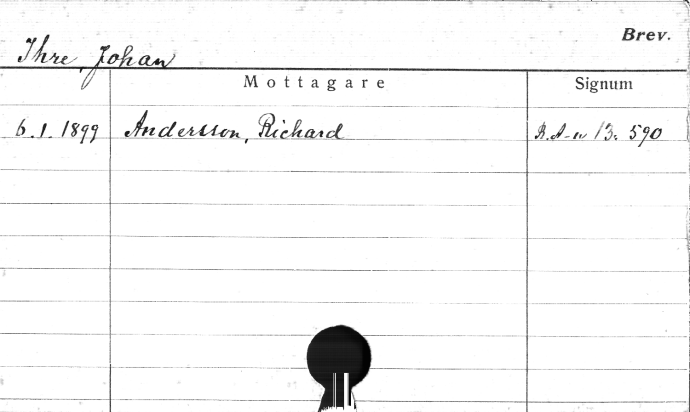 Brev.
Ihre, Johan
Mottagare Signum
6.1.1899 Andersson, Richard 13. 590